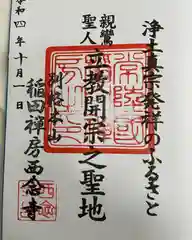 浄土真宗発祥のふるさと
親鸞
聖人
立教開宗之聖地
別格本山
稲田禅房西念寺
令和四年十月一日